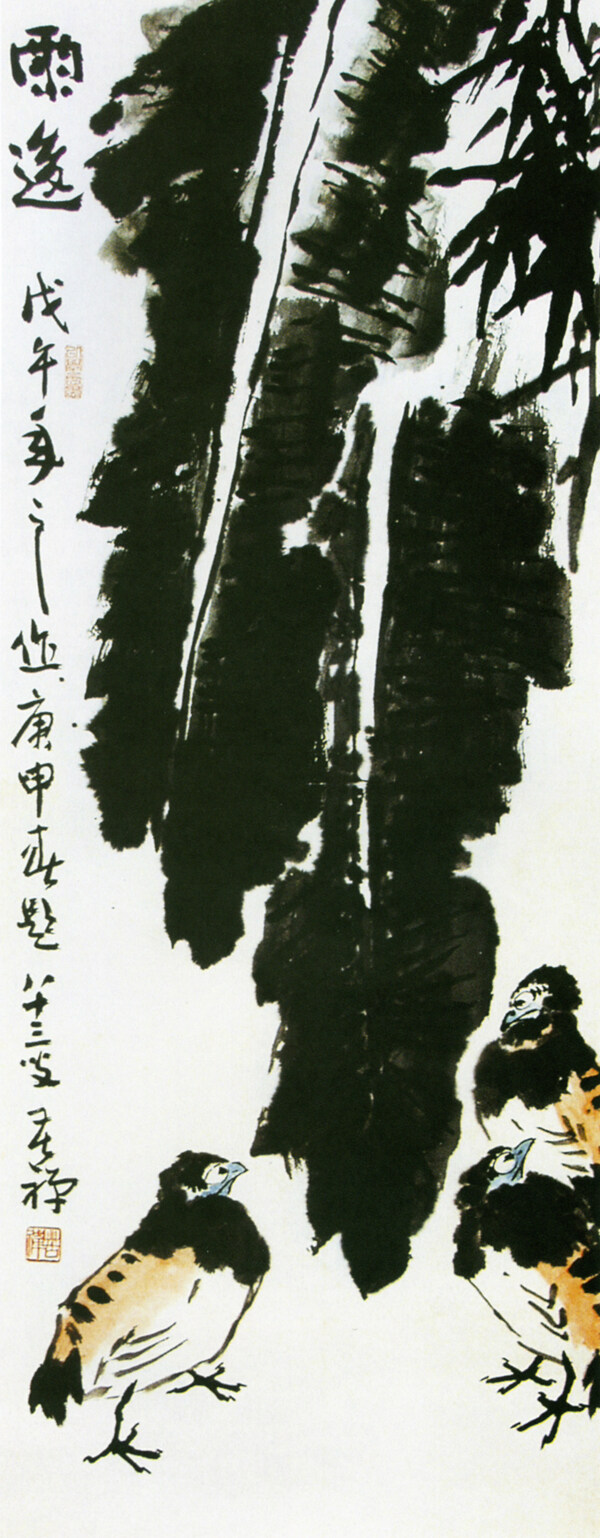 雨後
戊午年之作庚申春题八十三叟苦禅